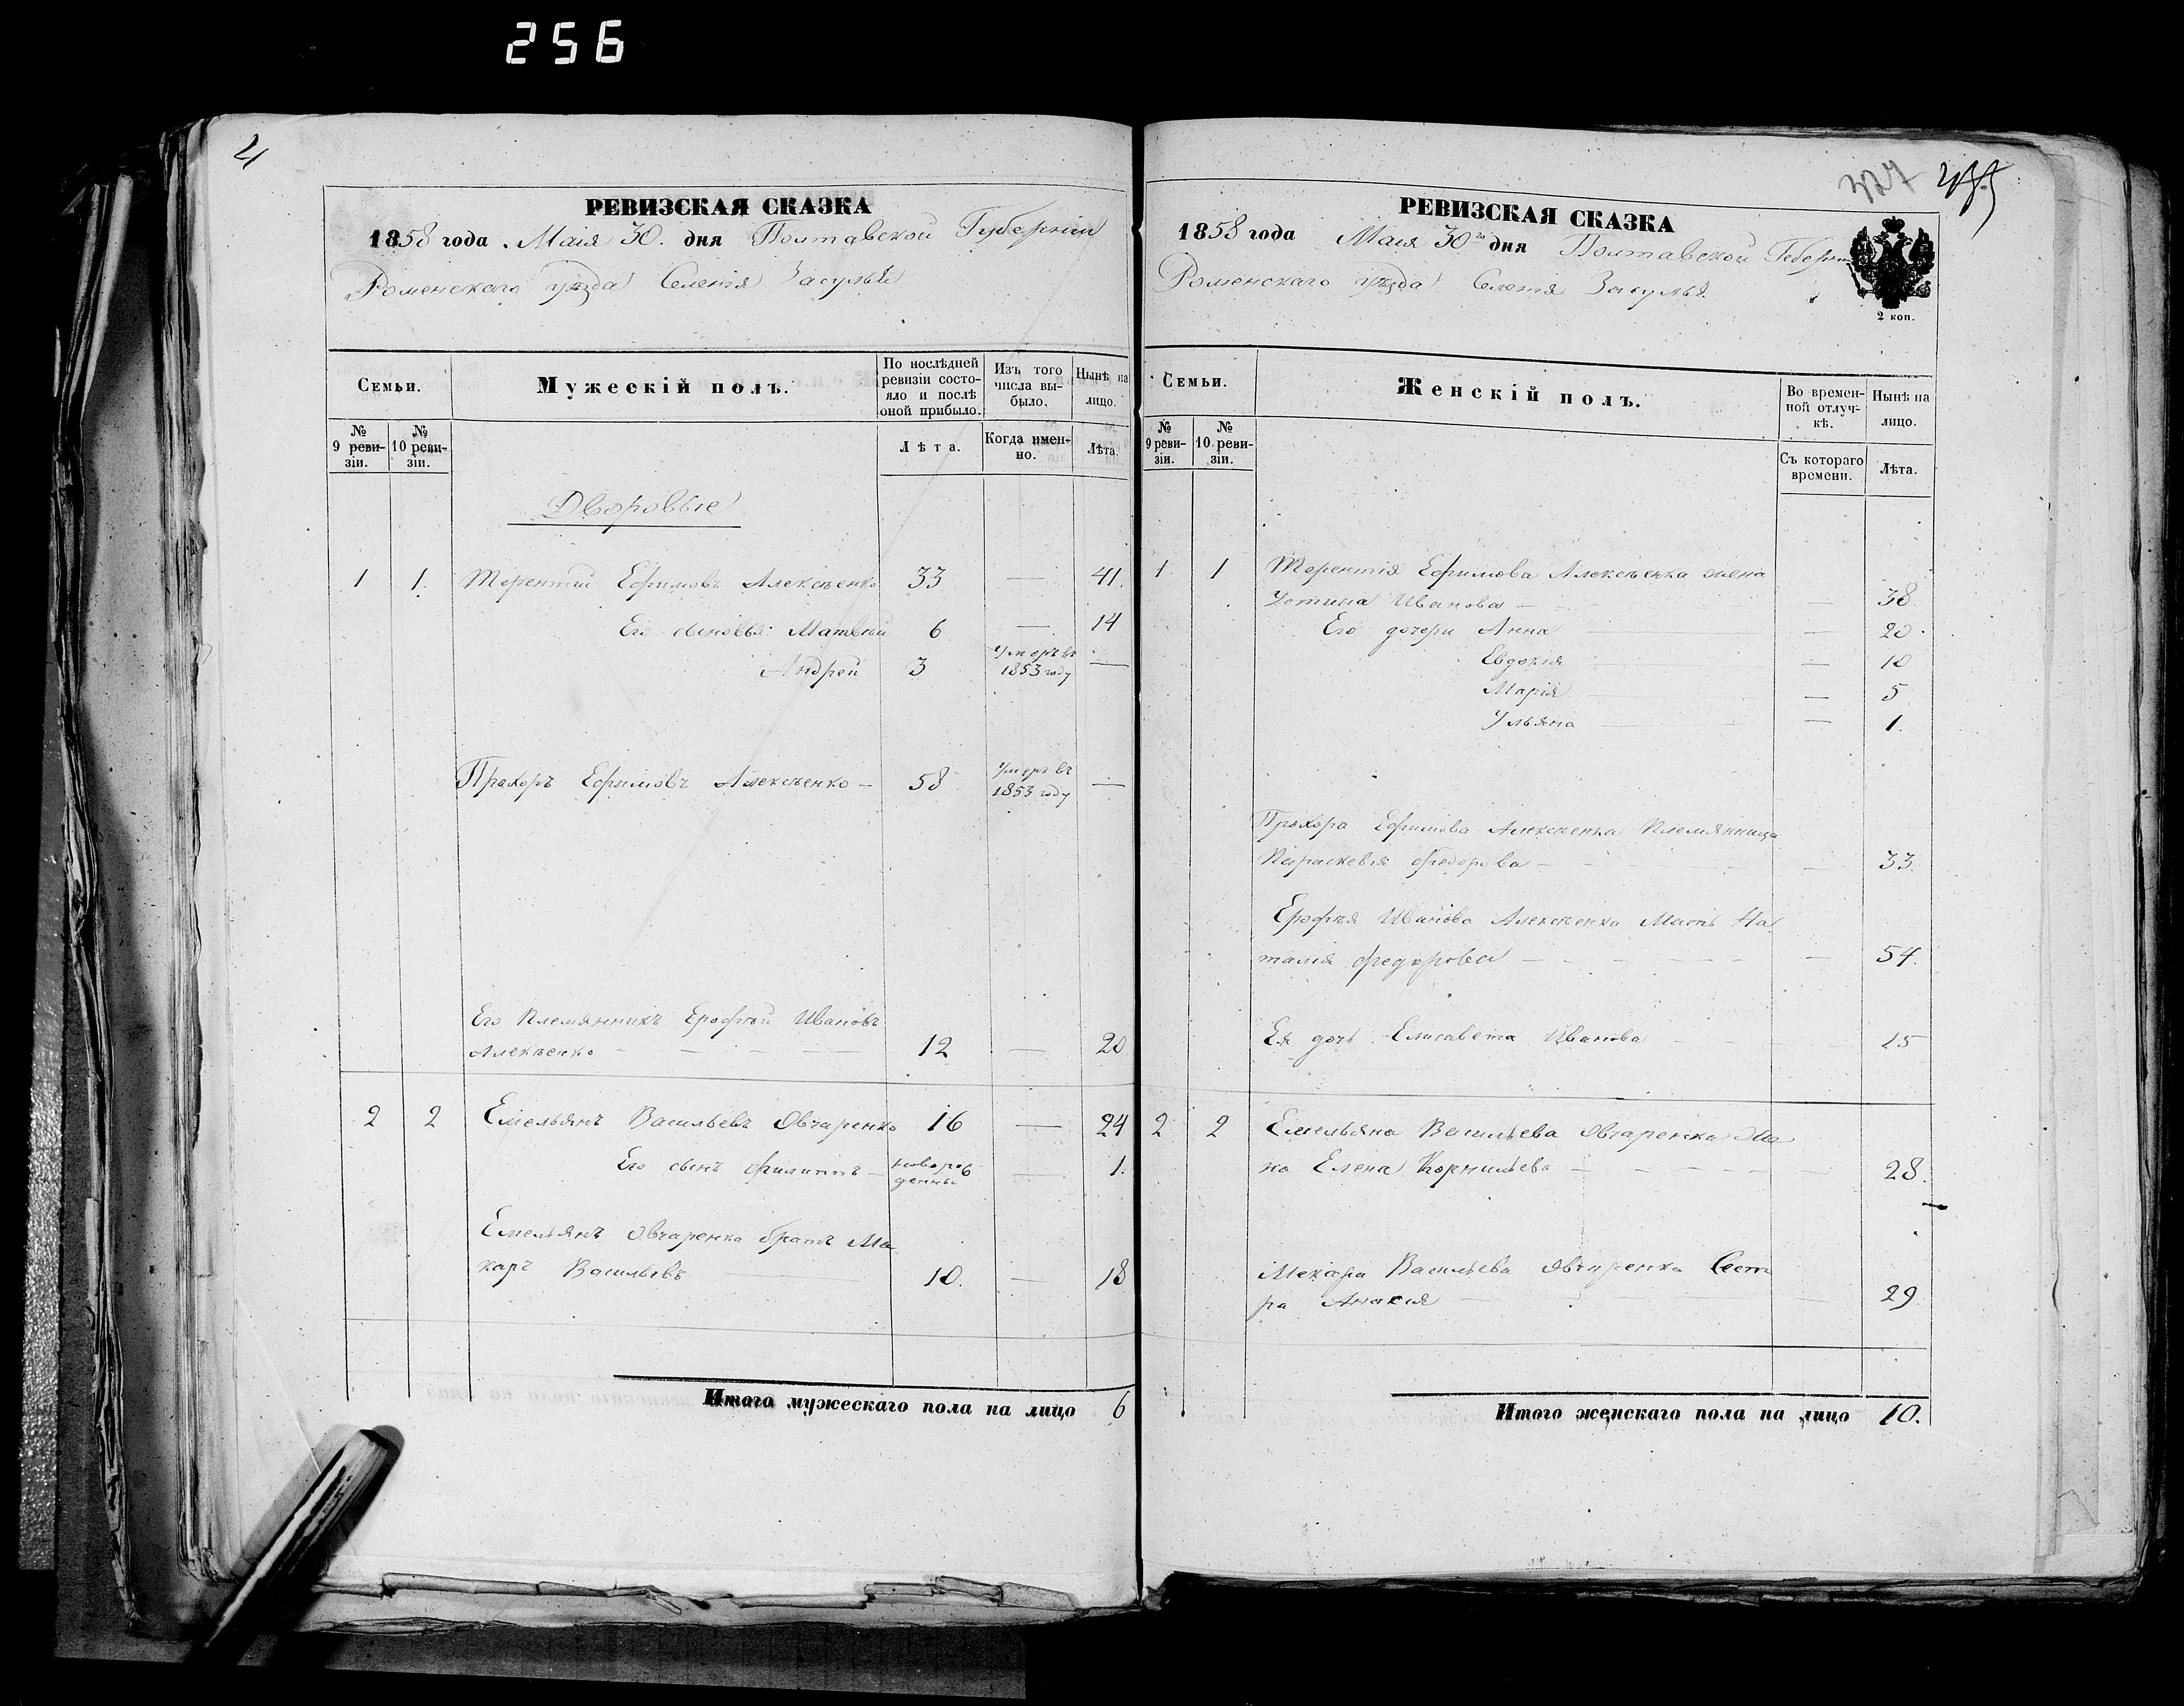 256
РЕВИЗСКАЯ СКАЗКА
1858 года. Маія 30. дня Полтавской Губерніи
Роменского уѣзда Селенія Засулья
Семьи.
Мужескій полъ.
По послѣдней ревизіи состояло и послѣ оной прибыло.
Изъ того числа выбыло.
Нынѣ на лицо.
№ 9 ревизіи.
№ 10 ревизіи.
Лѣта.
Когда именно.
Лѣта.
Дворовые
1 1. Терентій Ефимовъ Алексѣенко 33 — 41.
Его сыновья: Матвѣй 6 — 14
Андрей 3 Умеръ въ 1853 году —
Прохоръ Ефимовъ Алексѣенко — 58 Умеръ въ 1853 году —
Его племянникъ Ерофѣй Ивановъ
Алексѣенко — 12 — 20
2 2 Емельянъ Васильевъ Овчаренко 16 — 24
Его сынъ Филиппъ — 1.
Емельянъ Овчаренка братъ Ма
каръ Васильевъ 10. — 18
Итого мужескаго пола на лицо 6
РЕВИЗСКАЯ СКАЗКА
1858 года Маія 30го дня Полтавской
Роменскаго уѣзда Селенія Засулья.
2 коп.
Семьи.
Женскій полъ.
Во временной отлучкѣ.
Нынѣ на лицо.
№ 9 ревизіи.
№ 10 ревизіи.
Съ котораго времени.
Лѣта.
1. 1 Терентія Ефимова Алексѣенка жена
Устина Иванова — — 38
Его дочери Анна — — 20.
Евдокія — — 10
Марія — — 5
Ульяна — — 1.
Прохора Ефимова Алексѣенка племянница
Параскевія Федорова — — 33.
Ерофѣя Иванова Алексѣенка Мать На
талія Федорова — — 54.
Ея дочь Елисавета Иванова 15
2 2 Емельяна Васильева Овчаренка Же
на Елена Корнильева — 28.
Макара Васильева Овчаренка Сест
ра 29
Итого женскаго пола на лицо 10.